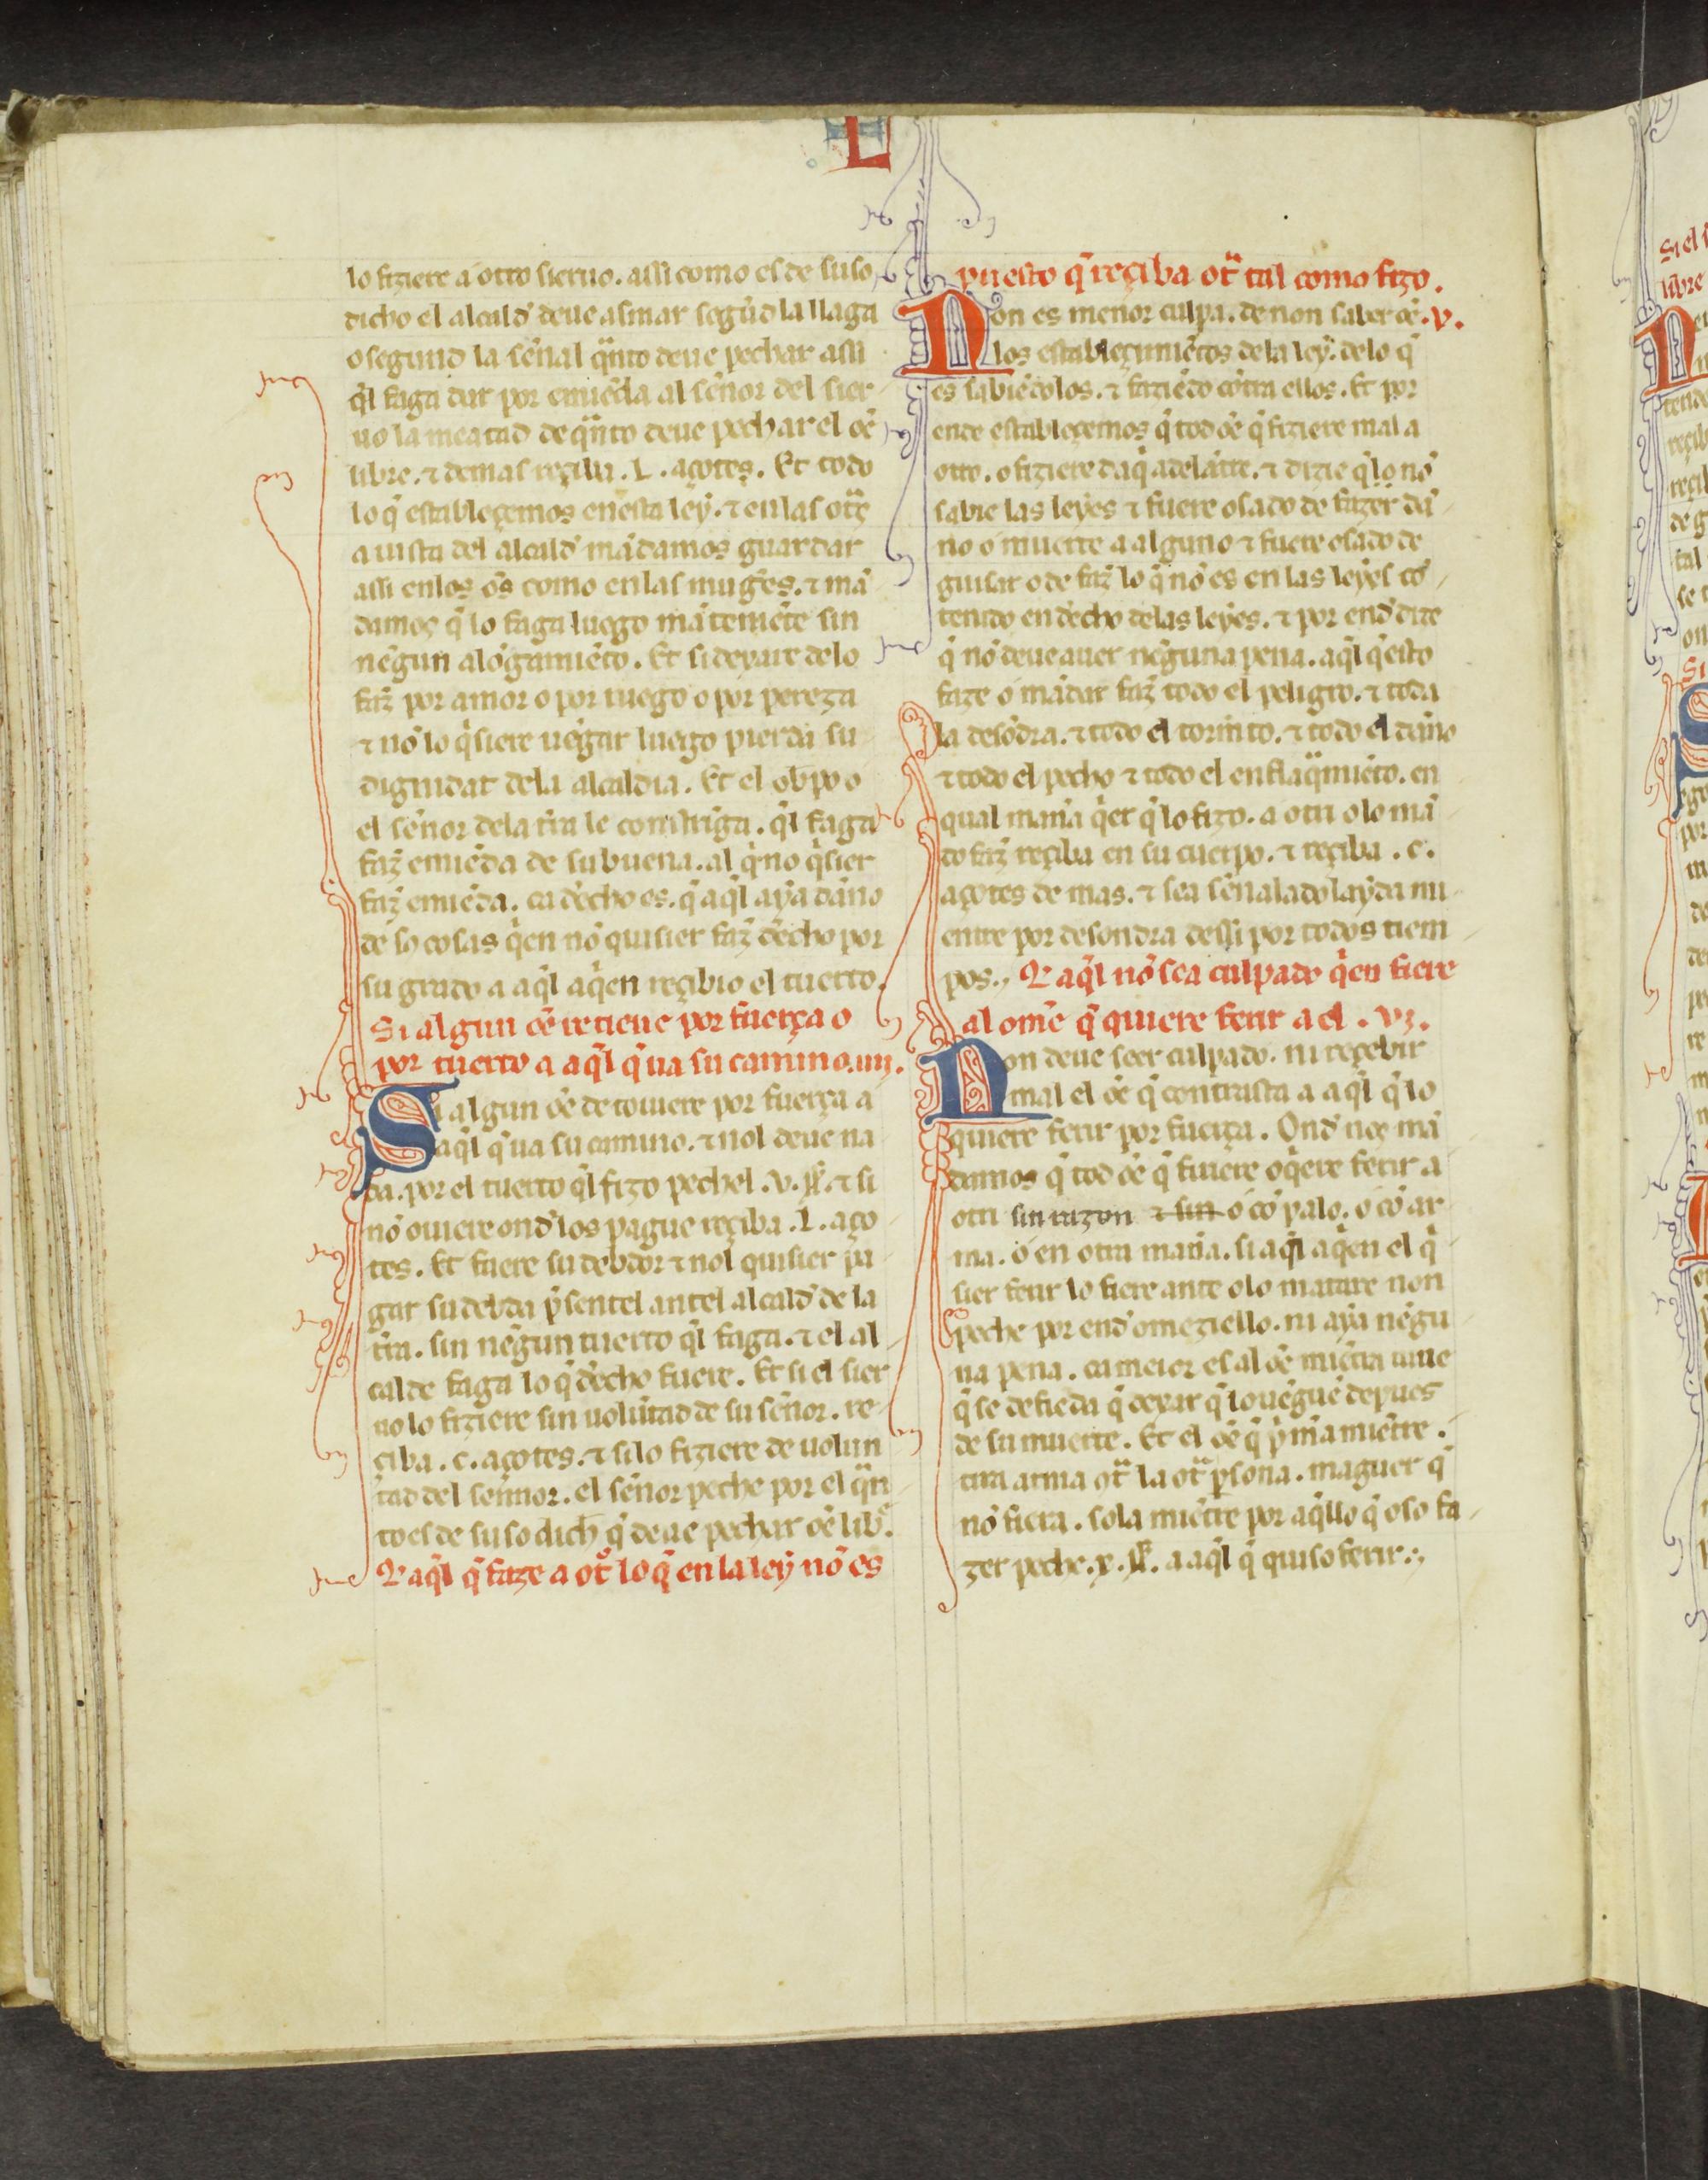 L
lo fiziere a otro sieruo. assi como es de suso
dicho el alcald deue asmar segũd la llaga
o segund la señal q̃nto deue pechar assi
q̃l faga dar por emiẽda al señor del sier
uo la meatad de q̃nto deue pechar el oẽ
libre. ⁊ demas reçiba .L. açotes. Et todo
lo q̃ establecemos en esta ley. ⁊ en las ot̃s
a uista del alcald mãdamos guardar
assi en los oẽs como en las mugẽs. ⁊ mã
damos q̃ lo faga luego mãtemẽte sin
nẽgun alõgamiẽto. Et si dexare de lo
faz̃ por amor o por ruego o por pereza
⁊ nõ lo q̃siere uẽgar luego pierda su
dignidat de la alcaldia. Et el obpo o
el señor de la tr̃ra le constriga. q̃l faga
faz̃ emiẽda de su buena. al q̃ no q̃sier
faz̃ emiẽda. ca dẽcho es. q̃ aq̃l aya daño
de so cosas q̃en nõ quisier faz̃ dẽcho por
su grado a aq̃l aq̃en reçibio el tuerto.
Si algun oẽ retiene por fuerça o
por tuerto a aq̃l q̃ ua su camino. iiij.
Si algun oẽ detouiere por fuerça a
aq̃l q̃ ua su camino. ⁊ nol deue na
da. por el tuerto q̃l fizo pechel .v. ss̃. ⁊ si
nõ ouiere ond los pague reçiba .L. aço
tes. Et fuere su debdor ⁊ nol quisier pa
gar su debda p̃sentel antel alcald de la
tr̃ra. sin nẽgun tuerto q̃l faga. ⁊ el al
calde faga lo q̃ dẽcho fuere. Et si el sier
uo lo fiziere sin uolũtad de su señor. re
çiba .c. açotes. ⁊ si lo fiziere de uolun
tad del sennor. el señor peche por el q̃n
to es de suso dich q̃ deue pechar oẽ libr̃e.
Q̃ aq̃l q̃ faze a ot̃o lo q̃ en la ley nõ es
puesto q̃ reçiba ot̃ tal como fizo.
Non es menor culpa. de non saber oẽ .v.
los establecimiẽtos de la ley. de lo q̃
es sabiẽdolos. ⁊ faziẽdo cõtra ellos. Et por
ende establecemos q̃ tod oẽ q̃ fiziere mal a
otro. o fiziere daq̃ adelãtre. ⁊ dizie q̃ lo nõ
sabie las leyes ⁊ fuere osado de fazer dã
no o muerte a alguno ⁊ fuere osado de
guisar o de faz̃ lo q̃ nõ es en las leyes cõ
tenido en dẽcho de las leyes. ⁊ por end dize
q̃ nõ deue auer nẽguna pena. aq̃l q̃ esto
faze o mãdar faz̃ todo el peligro. ⁊ toda
la desõdra. ⁊ todo el tormto. ⁊ todo el daño
⁊ todo el pecho ⁊ todo el enflaq̃miẽto. en
qual mañra q̃er q̃ lo fizo. a otri o lo mã
do faz̃ reçiba en su cuerpo. ⁊ reçiba .c.
açotes de mas. ⁊ sea señalado layda mi
entre por desondra dessi por todos tiem
pos. Q̃ aq̃l nõ sea culpado q̃en fiere
al omẽ q̃ quiere ferir a el .vj.
Non deue seer culpado. ni reçebir
mal el oẽ q̃ contrasta a aq̃l q̃ lo
quiere ferir por fuerça. Ond nos mã
damos q̃ tod oẽ q̃ fuiere o q̃ere ferir a
otri sin razon ⁊ sin o cõ palo. o cõ ar
ma. o en otra mañra. si aq̃l aq̃en el q̃
sier ferir lo fiere ante o lo matare non
peche por end omeziello. ni aya nẽgu
na pena. ca meior es al oẽ miẽtra uiue
q̃ se defieda q̃ dexar q̃ lo uẽguẽ depues
de su muerte. Et el oẽ q̃ p̃m̃a miẽtre.
tira arma ot̃ la ot̃ p̃sona. maguer q̃
nõ fiera. sola miẽtre por aq̃llo q̃ oso fa
zer peche .x. ss̃. a aq̃l q̃ quiso ferir.